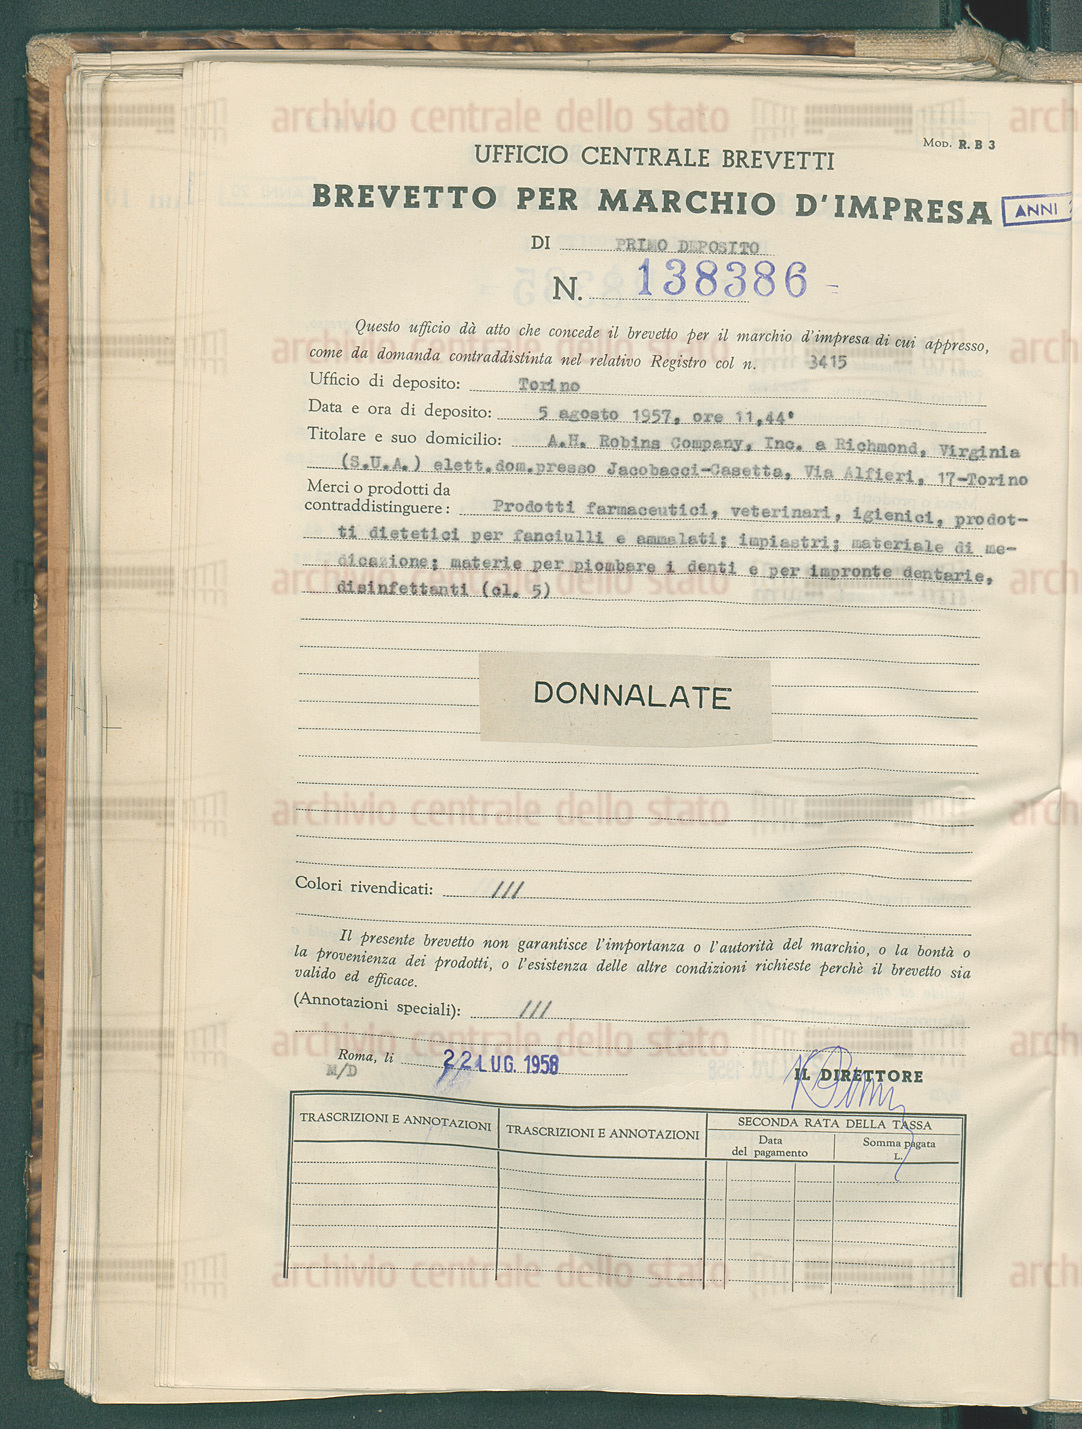 Mod. R. B 3
UFFICIO CENTRALE BREVETTI
BREVETTO PER MARCHIO D'IMPRESA
ANNI
DI PRIMO DEPOSITO
N. 138386 -
Questo ufficio dà atto che concede il brevetto per il marchio d'impresa di cui appresso,
come da domanda contraddistinta nel relativo Registro col n. 3415
Ufficio di deposito: Torino
Data e ora di deposito: 5 agosto 1957, ore 11,44'
Titolare e suo domicilio: A.H. Robins Company, Inc. a Richmond, Virginia
(S.U.A.) elett.dom.presso Jacobacci-Casetta, Via Alfieri, 17-Torino
Merci o prodotti da
contraddistinguere: Prodotti farmaceutici, veterinari, igienici, prodot-
ti dietetici per fanciulli e ammalati; impiastri; materiale di me-
dicazione; materie per piombare i denti e per impronte dentarie,
disinfettanti (cl. 5)
DONNALATE
Colori rivendicati: ///
Il presente brevetto non garantisce l'importanza o l'autorità del marchio, o la bontà o
la provenienza dei prodotti, o l'esistenza delle altre condizioni richieste perchè il brevetto sia
valido ed efficace.
(Annotazioni speciali): ///
Roma, li 22 LUG. 1958
M/D
IL DIRETTORE
TRASCRIZIONI E ANNOTAZIONI
TRASCRIZIONI E ANNOTAZIONI
SECONDA RATA DELLA TASSA
Data
del pagamento
Somma pagata
L.
archivio centrale dello stato
archivio centrale dello stato
archivio centrale dello stato
archivio centrale dello stato
archivio centrale dello stato
archivio centrale dello stato